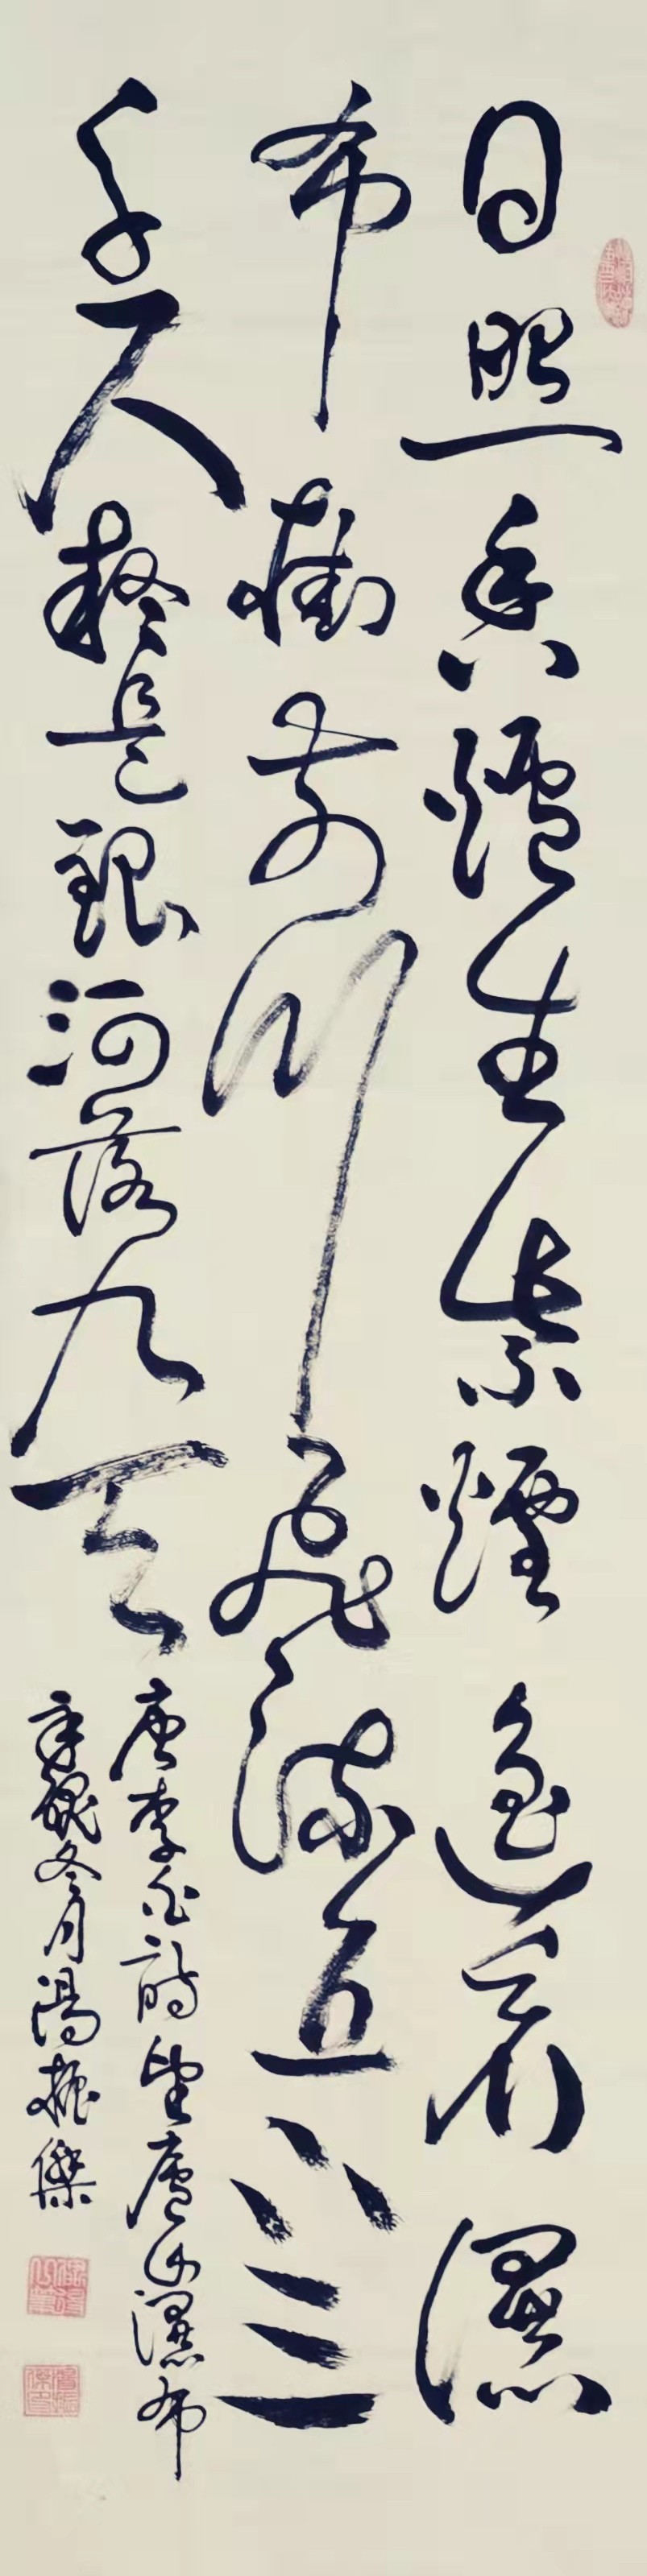 日照香爐生紫煙遙看瀑
布掛前川飛流直下三
千尺疑是銀河落九天
唐李白詩望廬山瀑布
辛醜冬月湯振傑